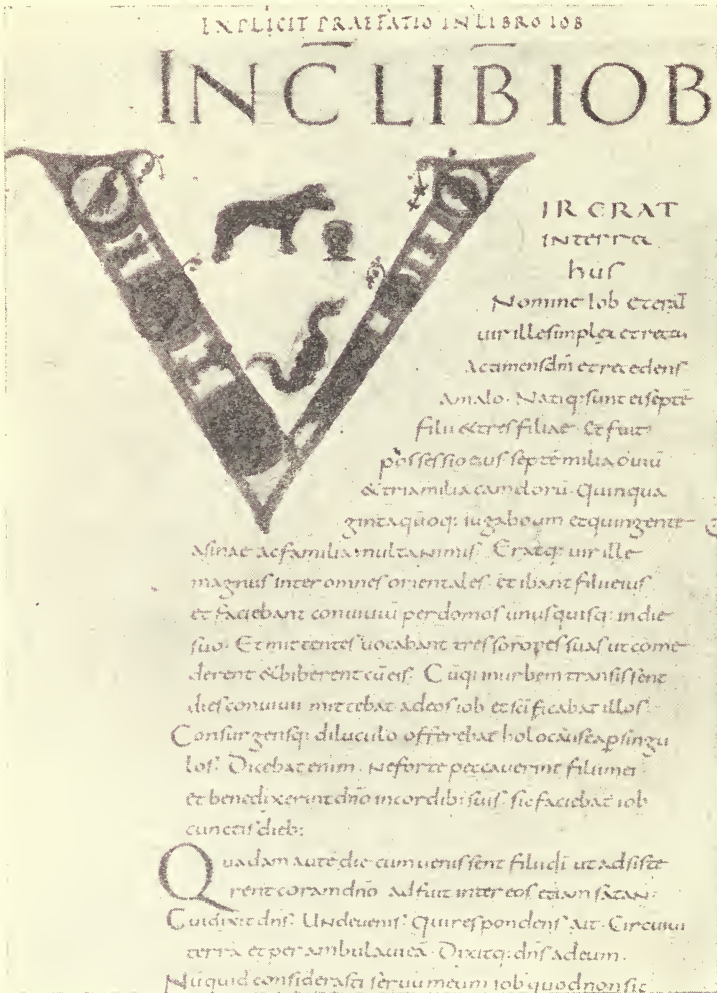 EXPLICIT PRAEFATIO IN LIBRO IOB
INC̄ LIB̄ IOB
V IR ERAT
IN terra
hus
Nomine Iob et erat̄
uir ille simplex et rectus
Ac timens dm̄ et recedens
amalo. Natiq; sunt ei septē
filii & tres filiae. Et fuit
possessio eius septē milia ouiū
& tria milia camelorū. Quinqua
ginta quoq; iuga boum et quingente
asinae ac familia multa nimis. Eratq; uir ille
magnus inter omnes orientales. et ibant filii eius
et faciebant conuiuiū per domos unusquisq; in die
suo. Et mittentes uocabant tres sorores suas ut come
derent & biberent cū eis. Cūq; in urbem transissent
dies conuiuii mittebat ad eos iob et scīficabat illos.
Consurgensq; diluculo offerebat holocausta p singu
los. Dicebat enim. Ne forte peccauerint filii mei
et benedixerint dno in cordib; suis. sic faciebat iob
cunctis dieb;
Quadam autē die cum uenissent filii dī ut adsiste
rent coram dnō adfuit inter eos etiam satan.
Cui dixit dn̄s. Unde uenis. Qui respondens ait. Circuiui
terrā et perambulaui eā. Dixitq; dn̄s ad eum.
Nūquid considerasti seruum meum iob quod non sit